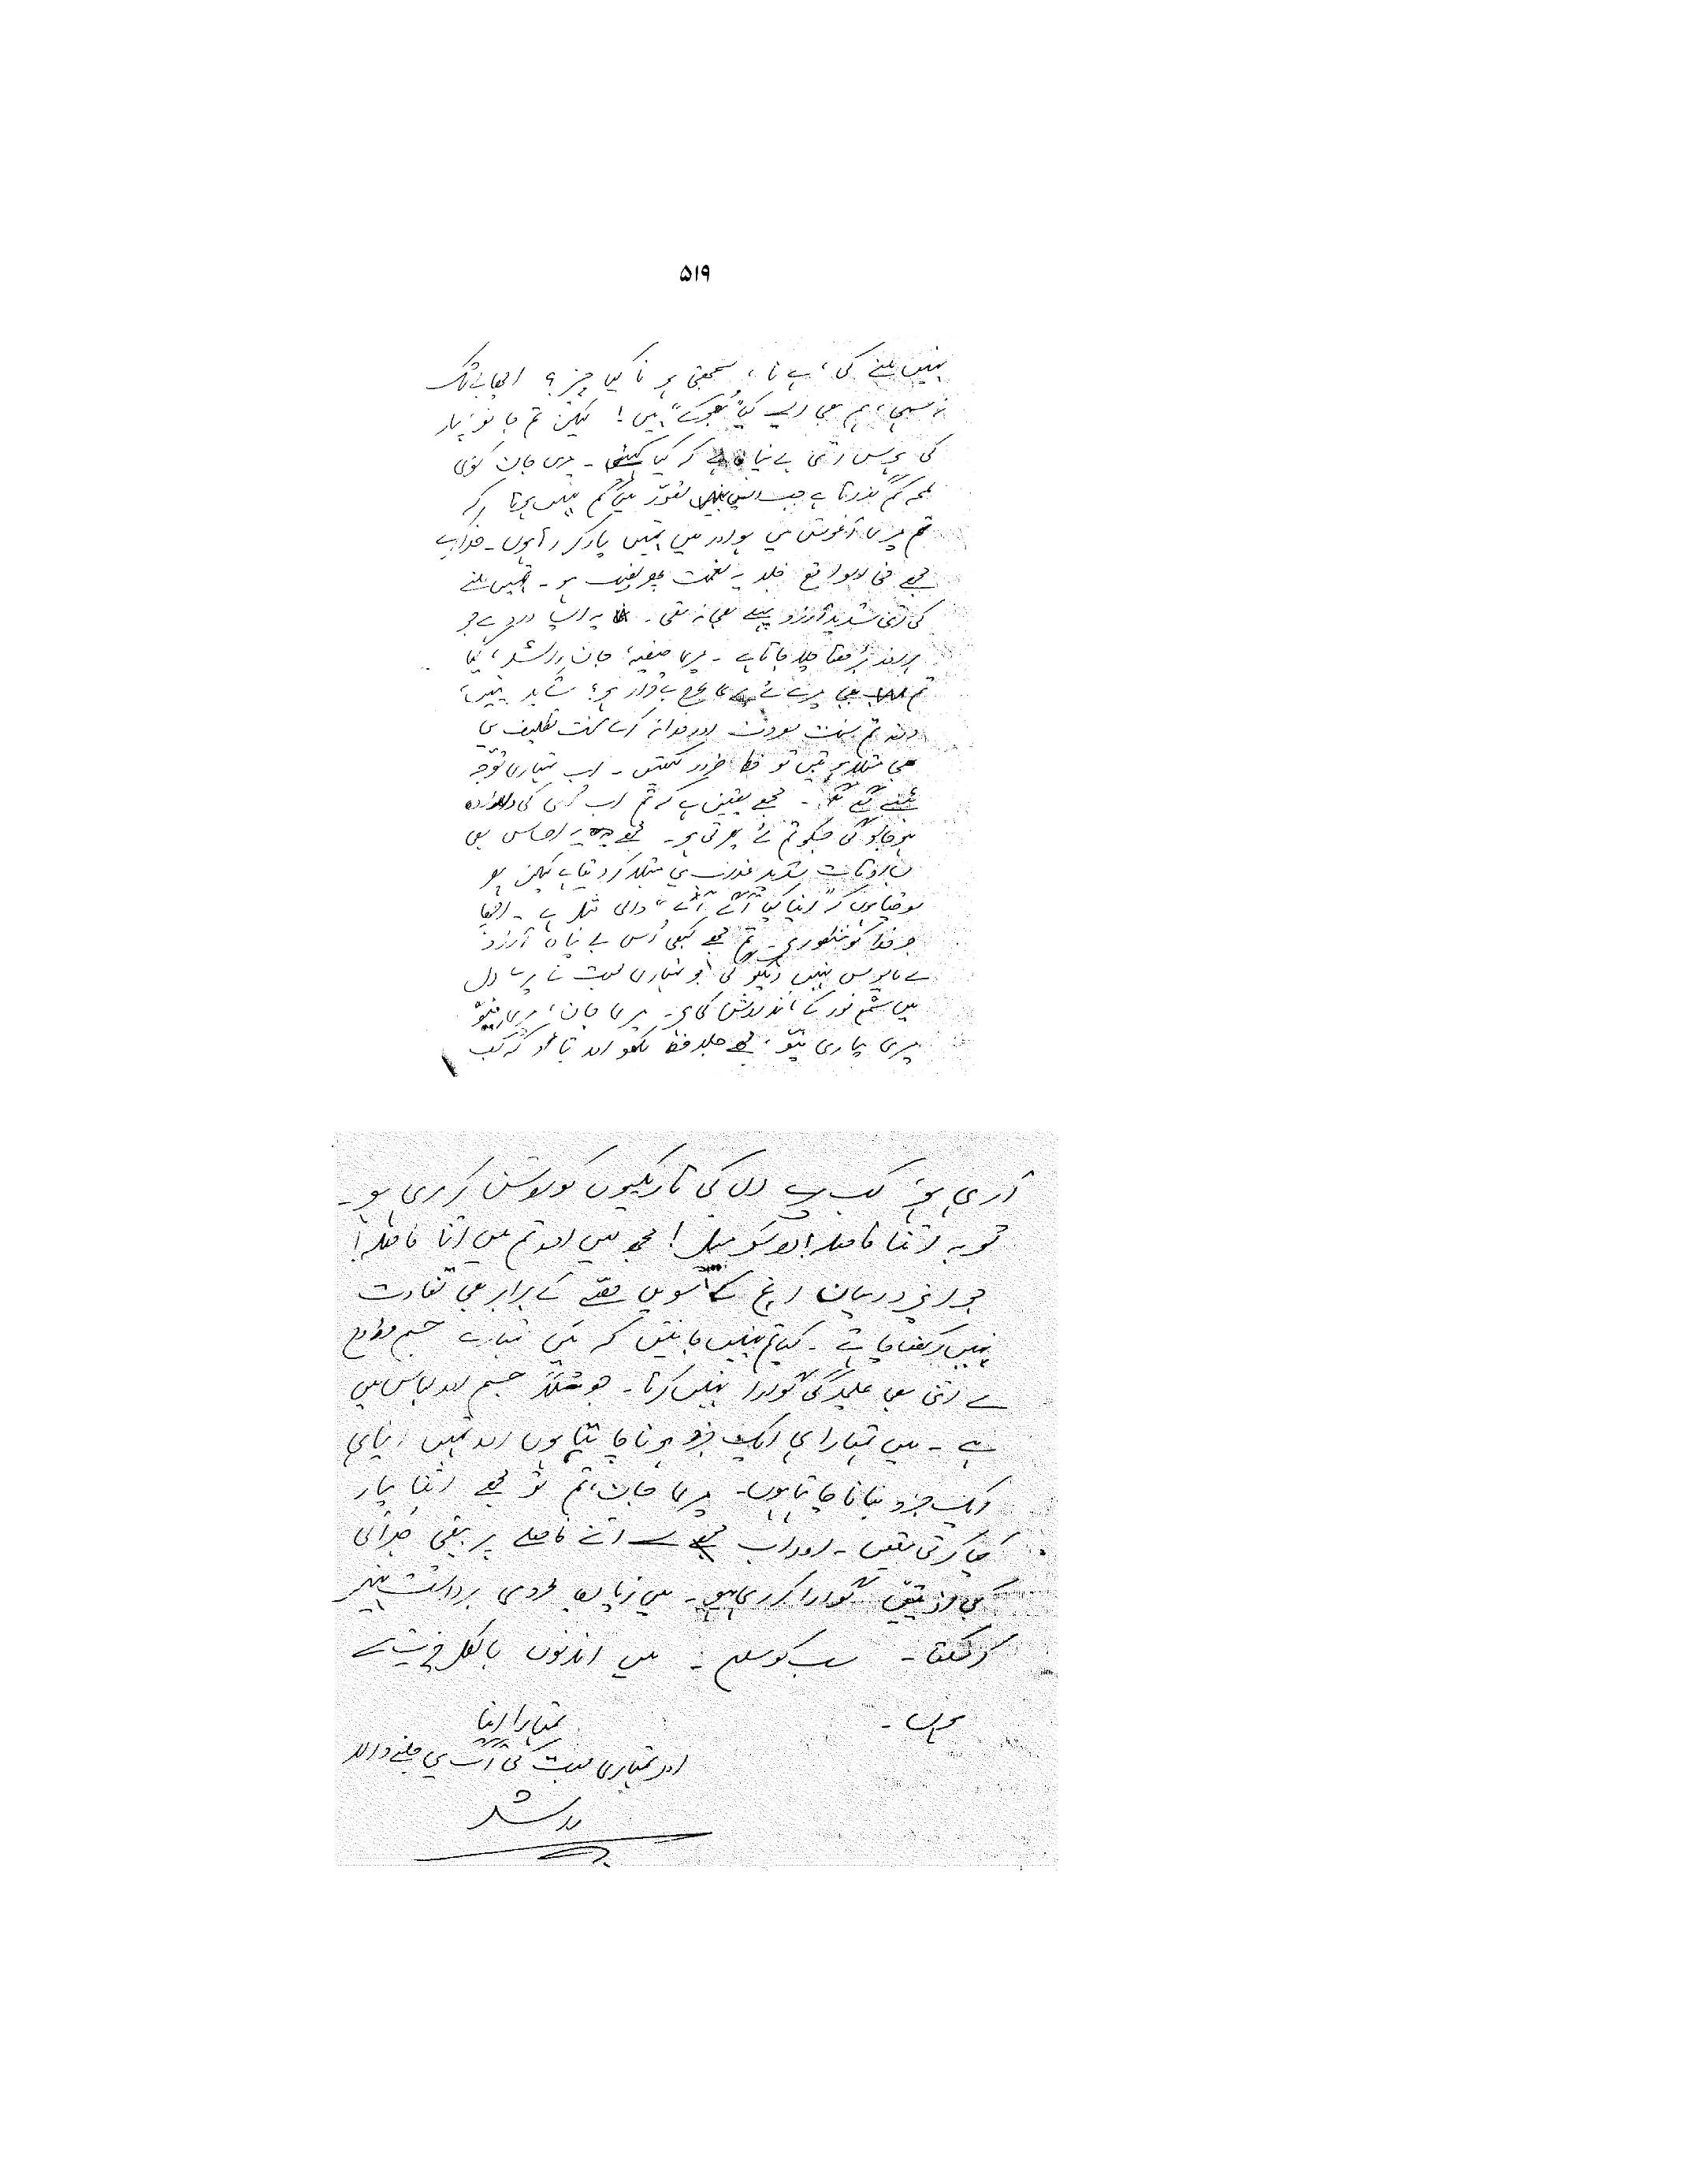 ۵۱۹
نہیں ملنے کی، ہے نا، سمجھتی ہو نا کیا چیز؟ اچھا بے شک
نہ سہی، ہم بھی ایسے کیا "بھوکے" ہیں! لیکن تم جانو پیار
کی ہوس اتنی بے پناہ ہے کہ کیا کہئے۔ میری جان کوئی
لمحہ کم گذرتا ہے جب اس تصور میں گم نہیں ہوتا کہ
تم میری آغوش میں ہو اور میں تمہیں پیار کر رہا ہوں۔ خدا کرے
مجھے فی الواقع جلد یہ نعمت پھر نصیب ہو۔ تمہیں ملنے
کی اتنی شدید آرزو پہلے کبھی نہ تھی۔ یہ ایسا درد ہے جو
ہر روز بڑھتا چلا جاتا ہے۔ میری صفیہ، جانِ راشد، کیا
تم بھی میرے لئے اسی طرح بے قرار ہو؟ شاید نہیں،
ورنہ تم سخت مصروف اور خدا نہ کرے سخت تکلیف میں
بھی مبتلا ہوتیں تو خط ضرور لکھتیں۔ اب تمہاری توجہ
بٹنے لگے گی۔ مجھے یقین ہے کہ تم اب اُسی کی دلدادہ
ہو جاؤ گی جسکو تم لئے پھرتی ہو۔ مجھے یہ احساس بھی
بسا اوقات شدید عذاب میں مبتلا کر دیتا ہے لیکن پھر
سوچتا ہوں کہ "اپنا کیا آگے آئے" والی مثل ہے۔ اچھا
جو خدا کو منظور ہو۔ تم مجھے کبھی اُس بے پناہ آرزو
سے مایوس نہیں دیکھو گی جو تمہاری محبت نے میرے دل
میں شمعِ نور کے مانند روشن کی ہے۔ میری جان، میری
میری پیاری، مجھے جلد خط لکھو اور بتاؤ کہ کب
آ رہی ہو، کب میرے دل کی تاریکیوں کو روشن کر رہی ہو۔
توبہ اتنا فاصلہ! سو میل! مجھ میں اور تم میں اتنا فاصلہ!
جو اپنے درمیان انچ کے سویں حصّے کے برابر بھی تفاوت
نہیں رکھنا چاہتے۔ کیا تم نہیں جانتیں کہ میں تمہارے جسم و روح
سے اتنی بھی علیحدگی گوارا نہیں کرتا۔ جو مثلاً جسم اور لباس میں
ہے۔ میں تمہارا ہی ایک جزو ہونا چاہتا ہوں اور تمہیں اپنا ہی
ایک جزو بنانا چاہتا ہوں۔ میری جان، تم تو مجھے اتنا پیار
کیا کرتی تھیں۔ اور اب مجھ سے اتنے فاصلے پر بیٹھی جدائی
کی اذیتیں گوارا کر رہی ہو۔ میں زیادہ محرومی برداشت نہیں
کر سکتا۔ سب کو سلام۔ میں ان دنوں بالکل خیریت سے
ہوں۔
تمہارا اپنا
اور تمہاری محبت کی آگ میں جلنے والا
راشد